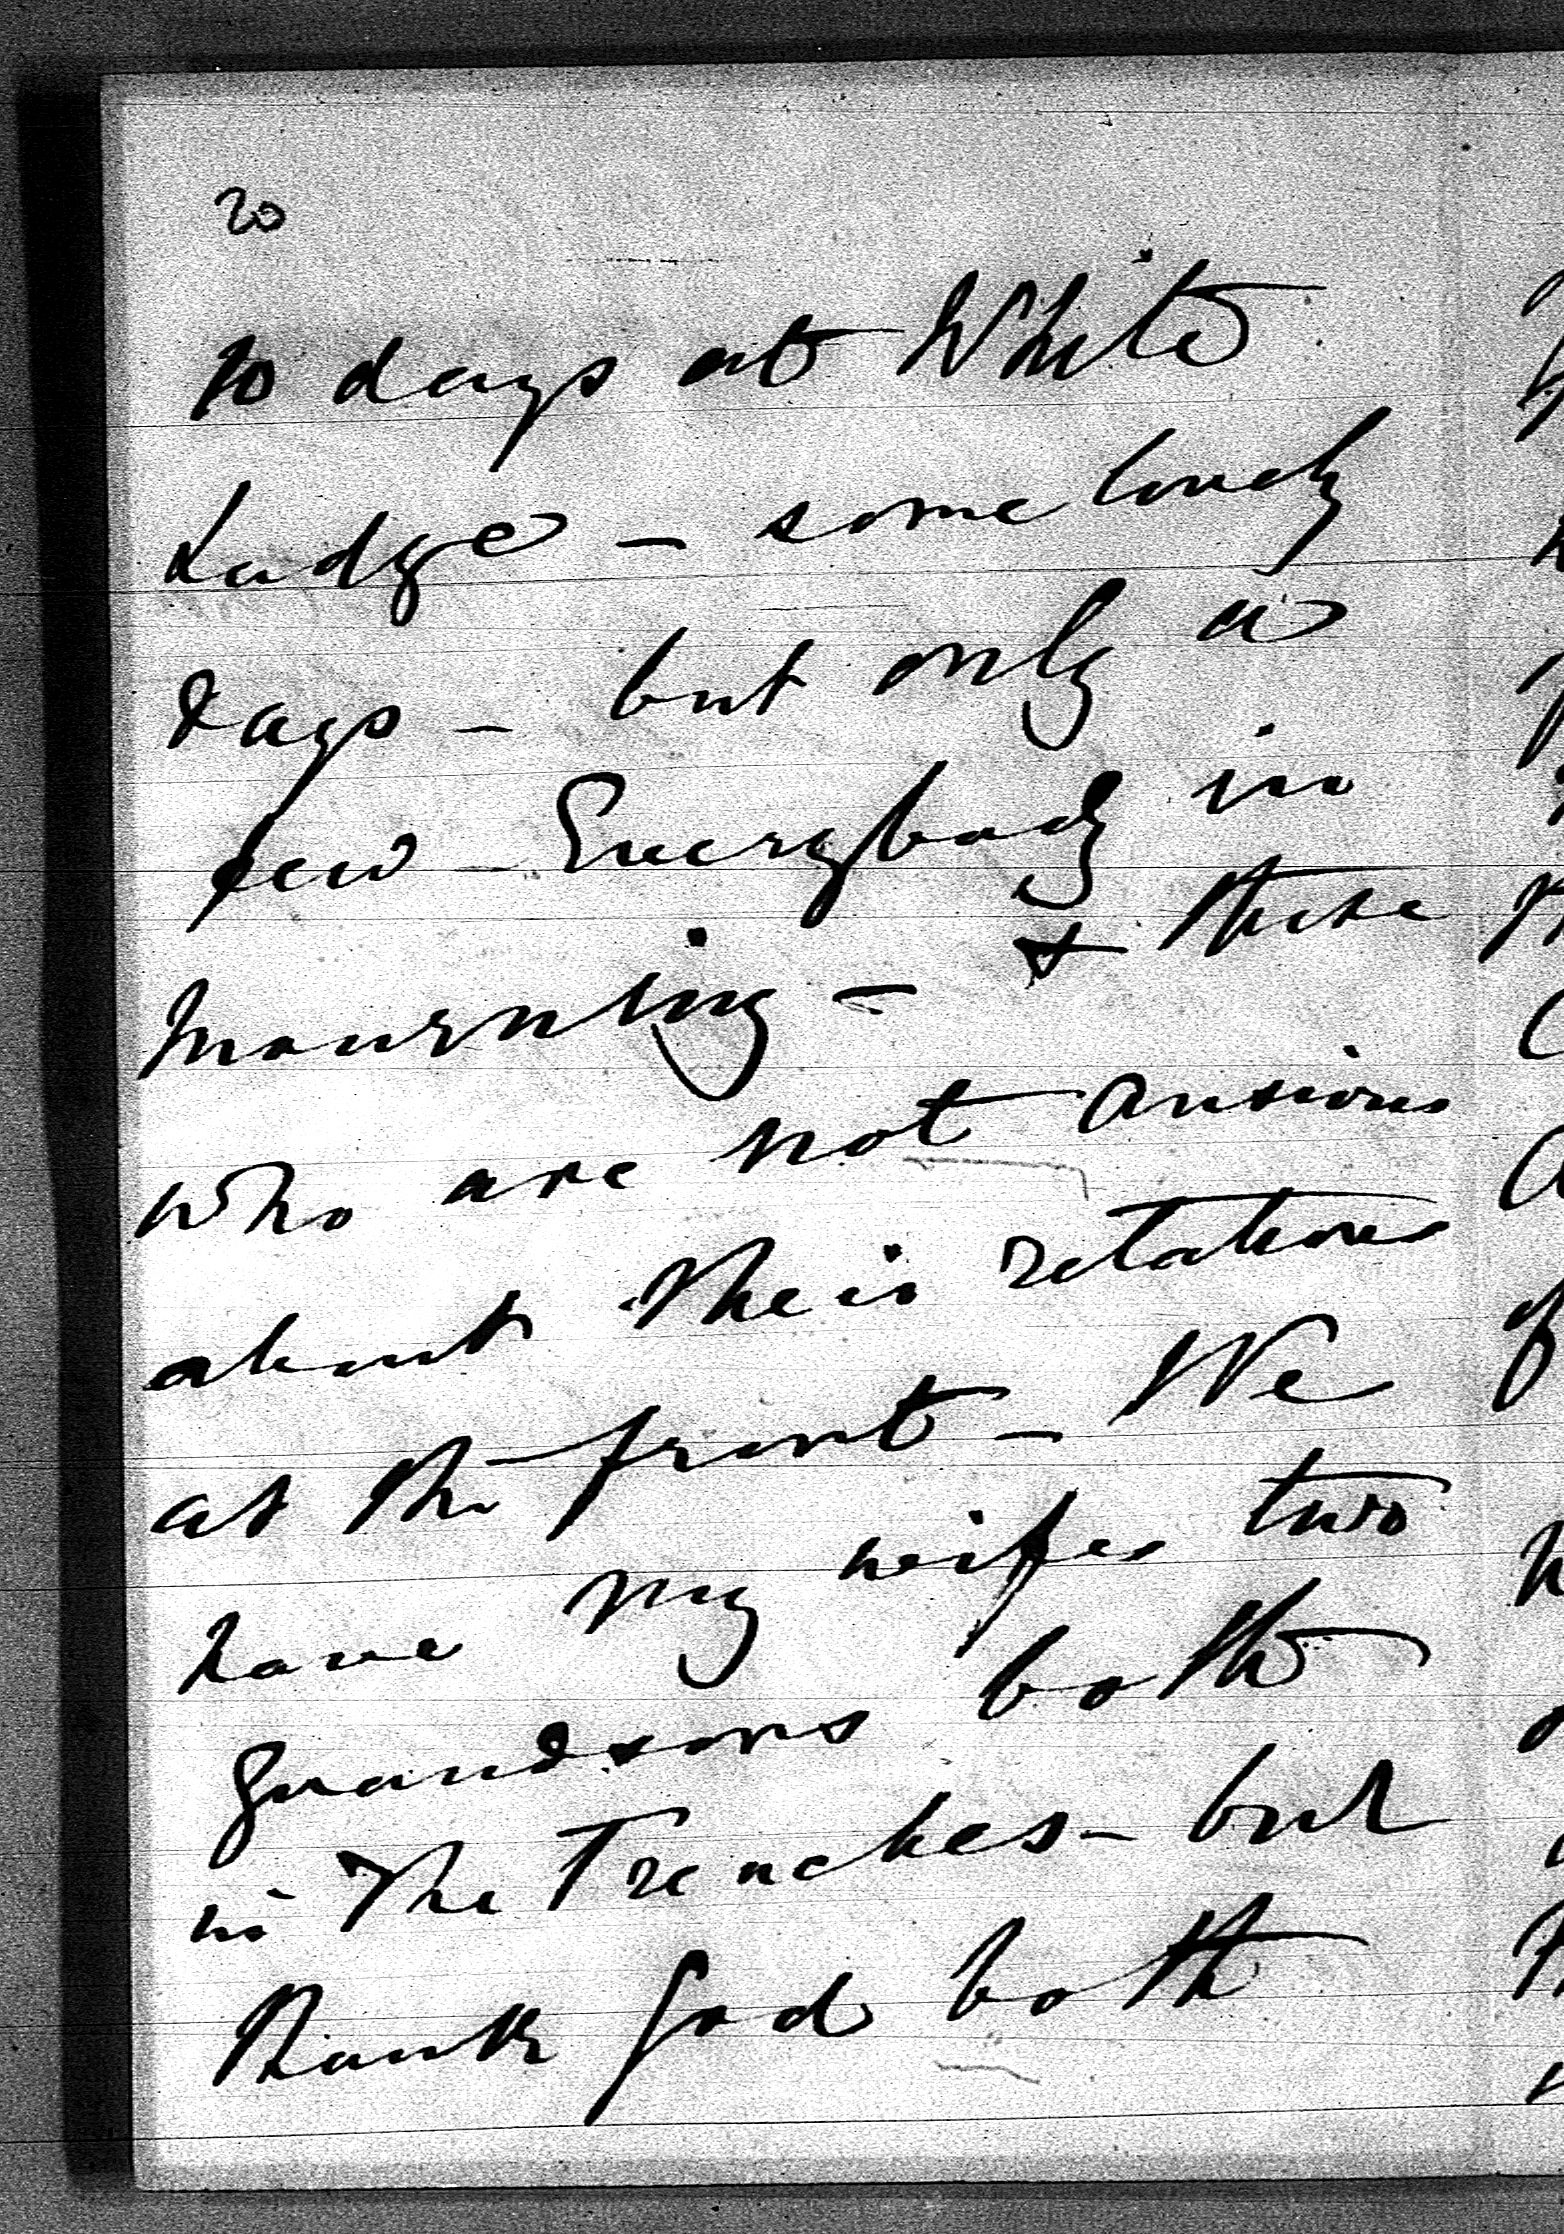 20
10 days at White
Lodge - some lovely
days - but only a
few - Everybody in
Mourning - & those
who are not anxious
about their relations
at the front - We
have my wifes two
Grandsons both
in The Trenches - but
Thank God both